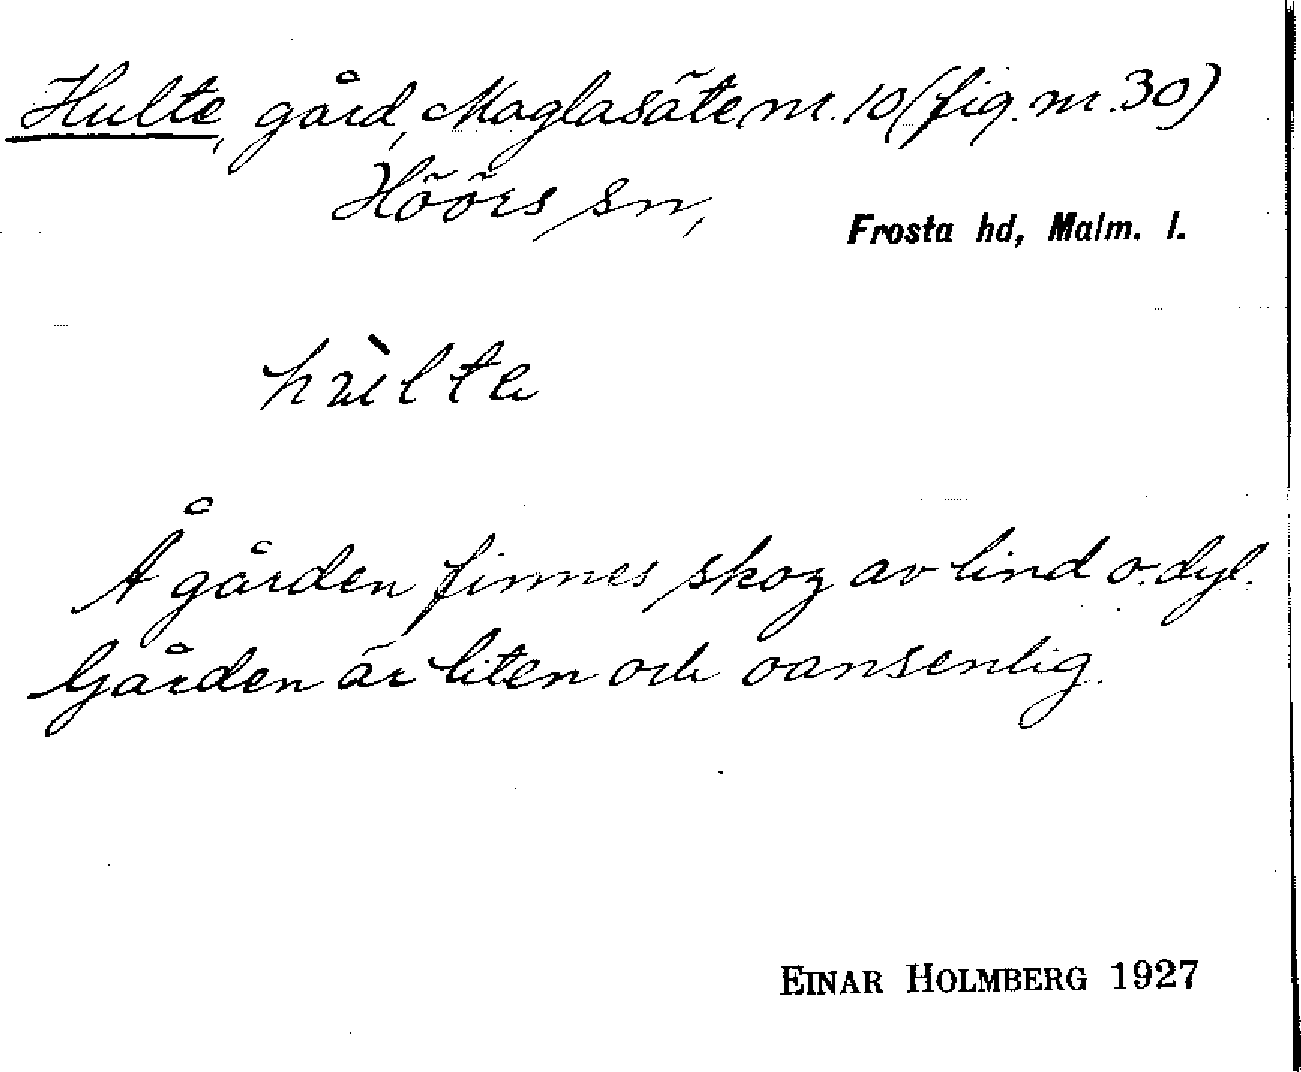 Hulte, gård, Maglasäte nr. 10 (fig. nr. 30)
Höörs sn,
Frosta hd, Malm. l.
hùlte
Å gården finnes skog av lind o. dyl.
Gården är liten och oansenlig.
EINAR HOLMBERG 1927